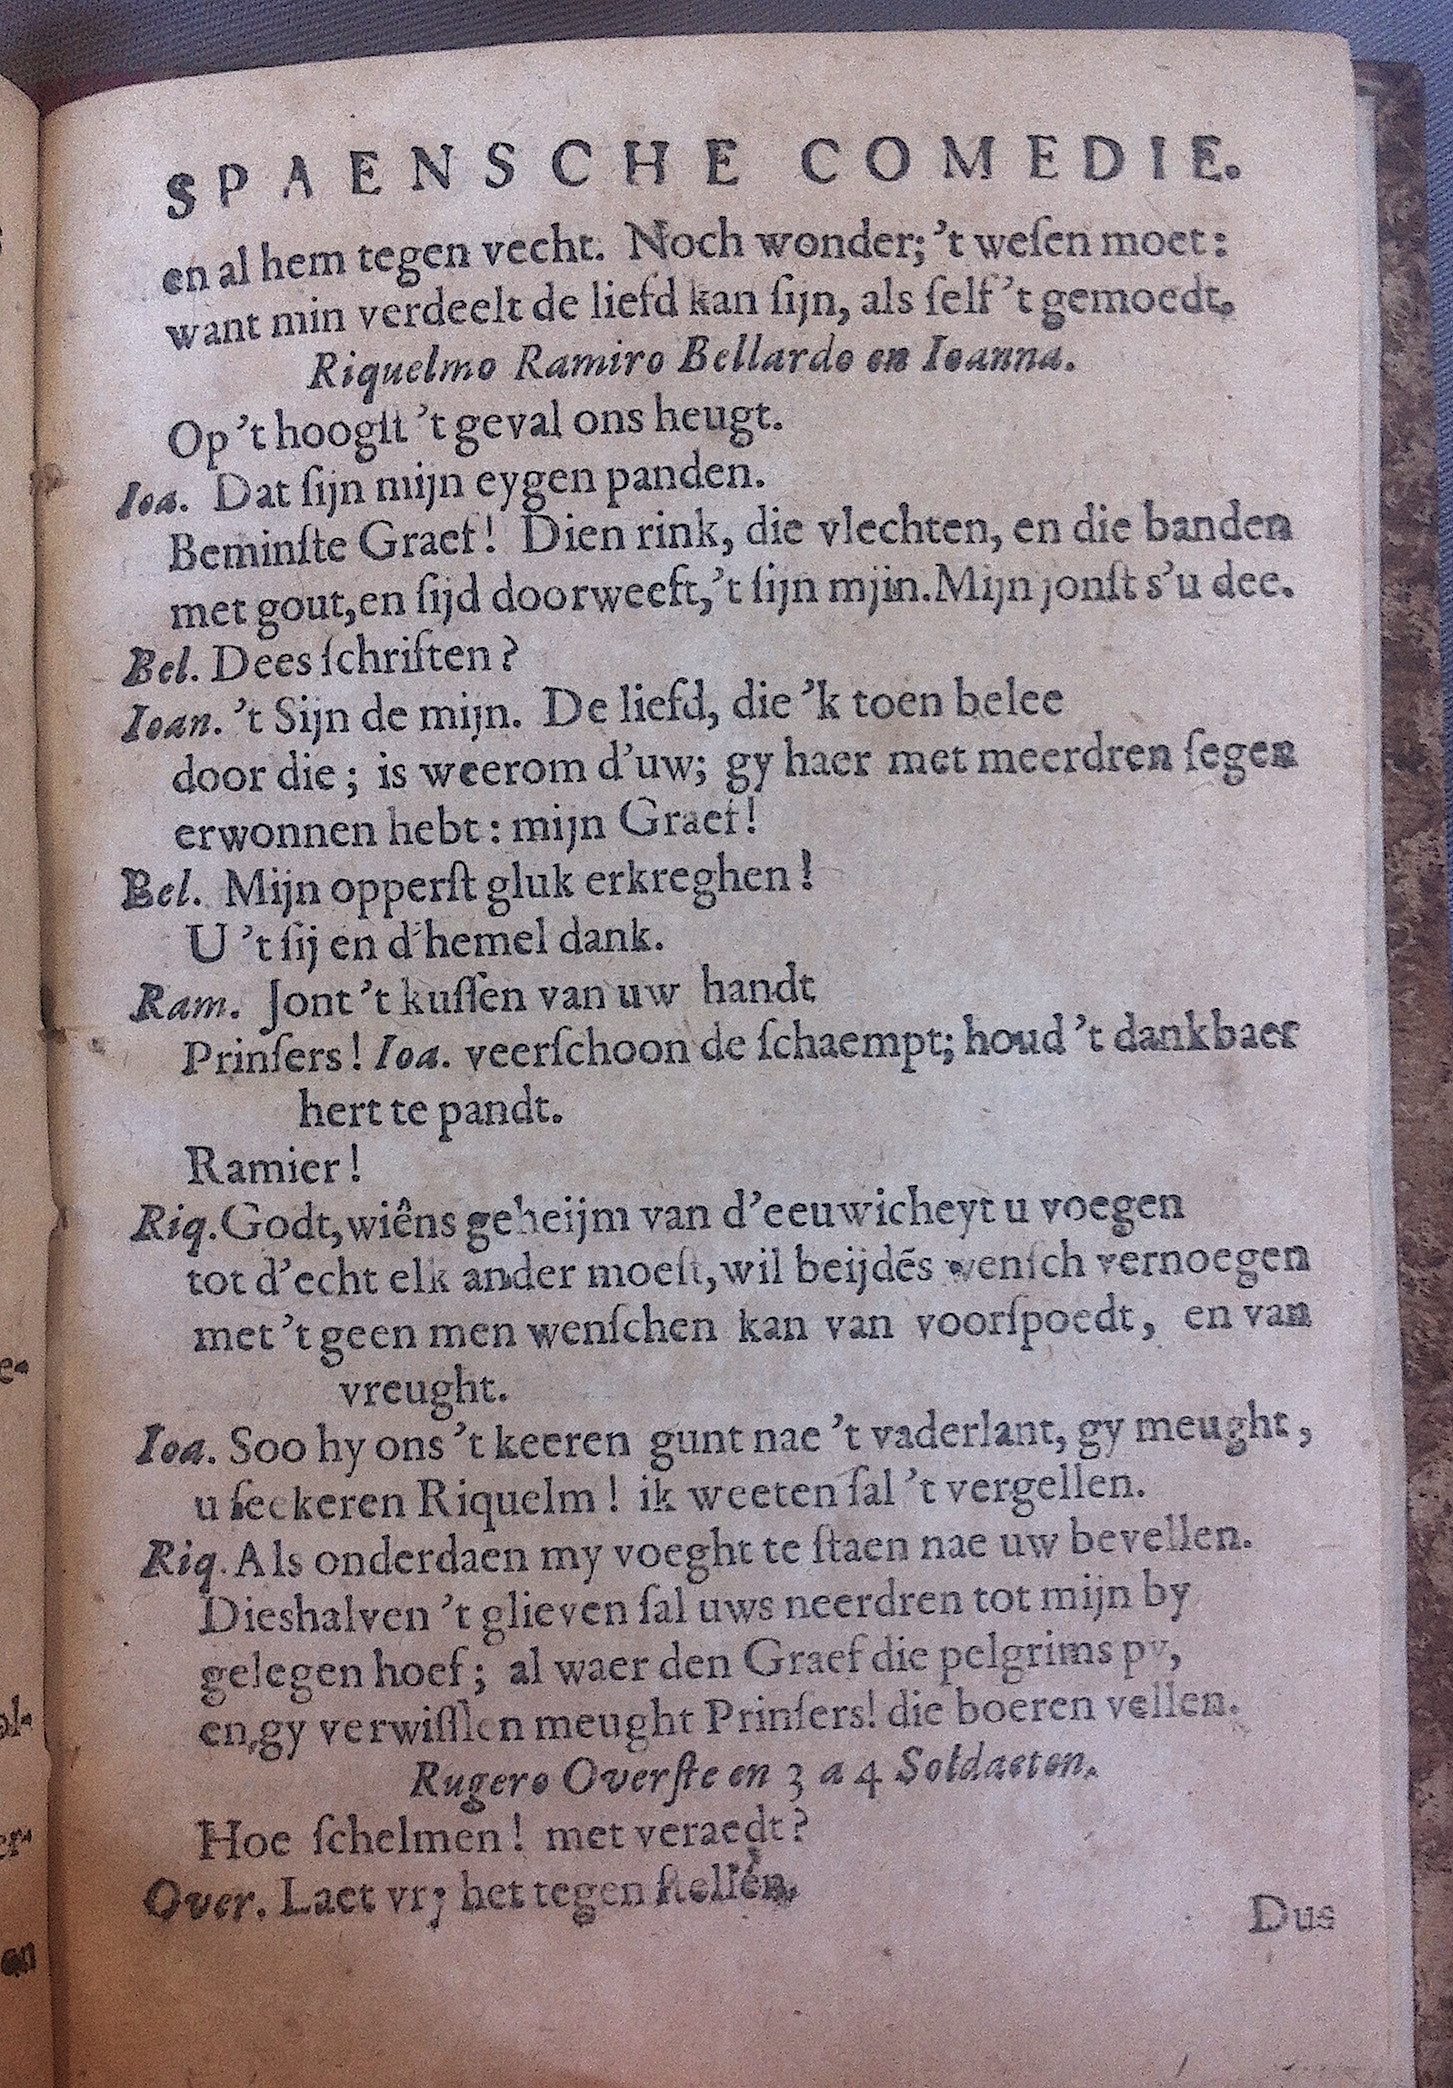 SPAENSCHE COMEDIE.
en al hem tegen vecht. Noch wonder; 't weſen moet:
want min verdeelt de liefd kan ſijn, als ſelf 't gemoedt.
Riquelmo Ramiro Bellardo en Ioanna.
Op 't hoogſt 't geval ons heugt.
Ioa. Dat ſijn mijn eygen panden.
Beminſte Graef! Dien rink, die vlechten, en die banden
met gout, en ſijd doorweeft, 't ſijn mjin. Mijn jonſt s'u dee.
Bel. Dees ſchriften?
Ioan. 't Sijn de mijn. De liefd, die 'k toen belee
door die; is weerom d'uw; gy haer met meerdren ſegen
erwonnen hebt: mijn Graef!
Bel. Mijn opperſt gluk erkreghen!
U 't ſij en d'hemel dank.
Ram. Jont 't kuſſen van uw handt
Prinſers! Ioa. veerſchoon de ſchaempt; houd 't dankbaer
hert te pandt.
Ramier!
Riq. Godt, wiêns geheijm van d'eeuwicheyt u voegen
tot d'echt elk ander moeſt, wil beijdẽs wenſch vernoegen
met 't geen men wenſchen kan van voorſpoedt, en van
vreught.
Ioa. Soo hy ons 't keeren gunt nae 't vaderlant, gy meught,
u ſeekeren Riquelm! ik weeten ſal 't vergellen.
Riq. Als onderdaen my voeght te ſtaen nae uw bevellen.
Dieshalven 't glieven ſal uws neerdren tot mijn by
gelegen hoef; al waer den Graef die pelgrims py,
en, gy verwiſſlen meught Prinſers! die boeren vellen.
Rugero Overſte en 3 a 4 Soldaeten.
Hoe ſchelmen! met veraedt?
Over. Laet vrj het tegen ſtellen.
Dus